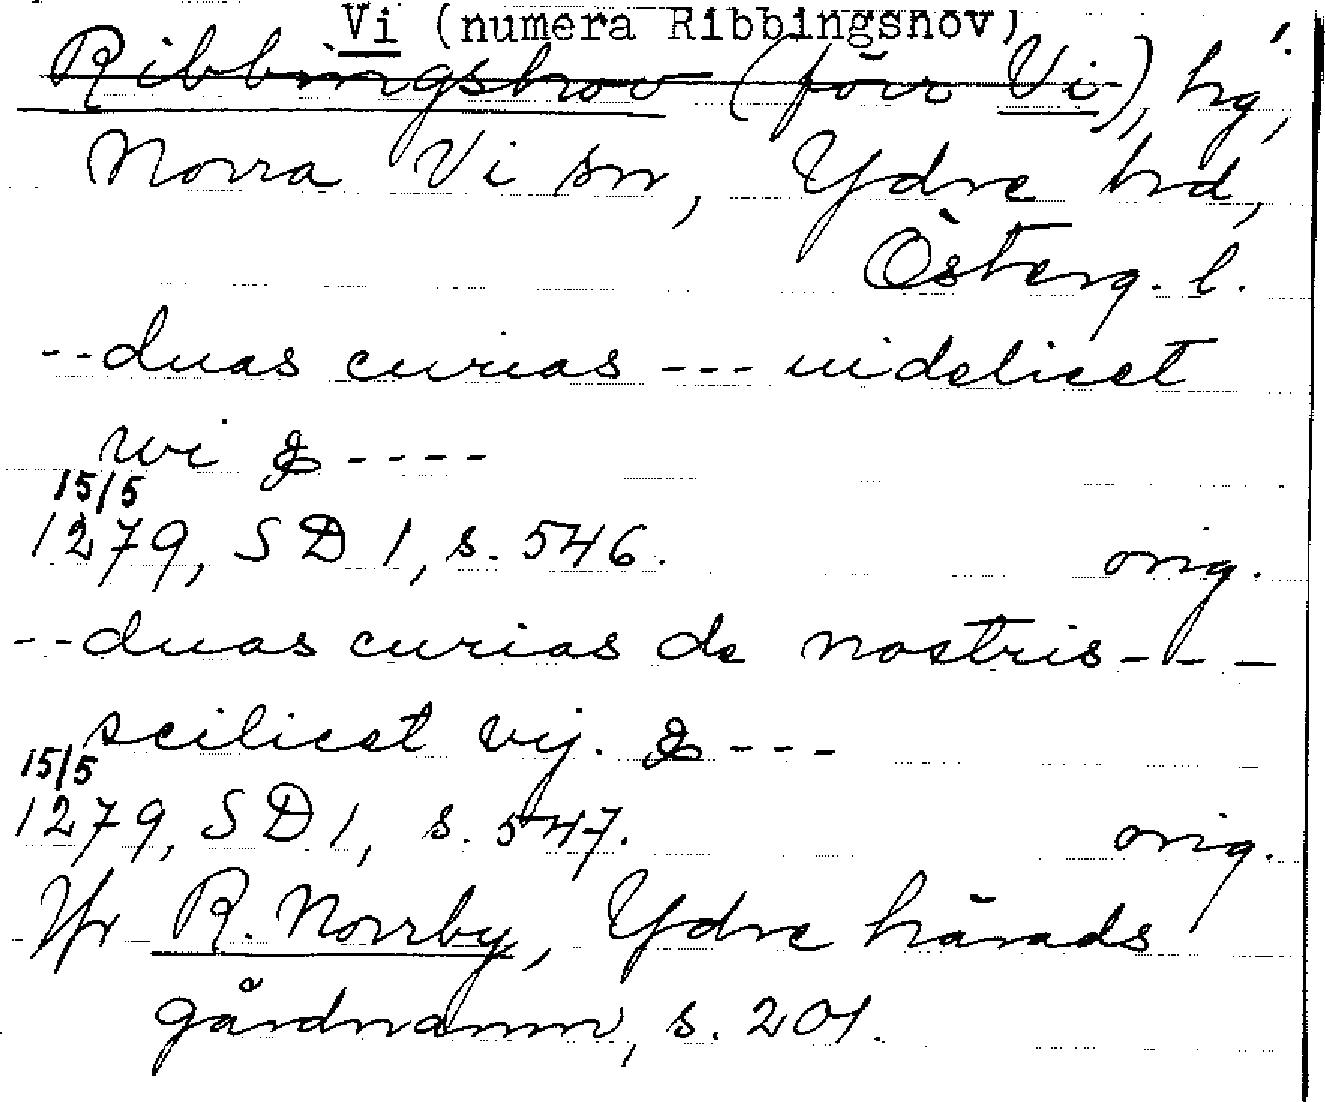 Vi (numera Ribbingshov) 1.
Ribbingshov (förr Vi), hg,
Norra Vi sn, Ydre hd,
Österg. l.
--duas curias --- uidelicet
wi & ----
15/5
1279, SD 1, s. 546. orig.
--duas curias de nostris---
scilicet vij. & ---
15/5
1279, SD 1, s. 547. orig.
Jfr R. Norrby, Ydre härads
gårdnamn, s. 201.